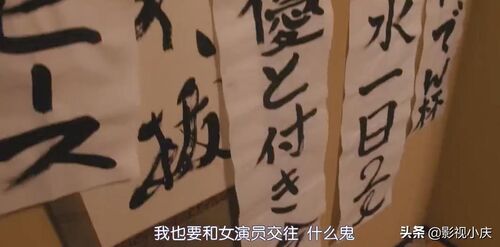 でん杯
水一日2ℓ
優と付き
ース
我也要和女演员交往 什么鬼
头条 @影视小庆